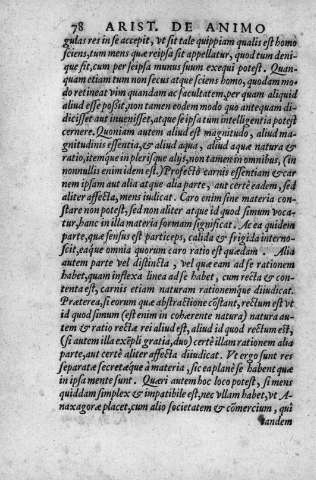 78 ARIST. DE ANIMO
gulas res in se accepit, vt sit tale quippiam qualis est homo
sciens, tum mens quæ reipsa sit appellatur, quod tum deni-
que fit, cum per seipsa munus suum exequi potest. Quan-
quam etiam tum non secus atque sciens homo, quodam mo-
do retineat vim quandam ac facultatem, per quam aliquid
aliud esse possit, non tamen eodem modo quo antequam di-
dicisset aut inuenisset, atque se ipsa tum intelligentia potest
cernere. Quoniam autem aliud est magnitudo, aliud ma-
gnitudinis essentia, & aliud aqua, aliud aquæ natura &
ratio, itemque in plerisque alijs, non tamen in omnibus, (in
nonnullis enim idem est.) Profectò carnis essentiam & car
nem ipsam aut alia atque alia parte, aut certè eadem, sed
aliter affecta, mens iudicat. Caro enim sine materia con-
stare non potest, sed non aliter atque id quod simum voca-
tur, hanc in illa materia formam significat. Ac ea quidem
parte, quæ sensus est particeps, calida & frigida interno-
scit, eaque omnia quorum caro ratio est quædam. Alia
autem parte vel distincta, vel quæ eam ad se rationem
habet, quam inflexa linea ad se habet, cum recta & con-
tenta est, carnis etiam naturam rationemque diiudicat.
Præterea, si eorum quæ abstractione cōstant, rectum est vt
id quod simum (est enim in cohærente natura) natura au-
tem & ratio rectæ rei aliud est, aliud id quod rectum est,
(si autem illa exēpli gratia, duo) certè illam rationem alia
parte, aut certè aliter affecta diiudicat. Vt ergo sunt res
separatæ secretæque à materia, sic ea planè se habent quæ
in ipsa mente sunt. Quæri autem hoc loco potest, si mens
quiddam simplex & impatibile est, nec vllam habet, vt A-
naxagoræ placet, cum alio societatem & cōmercium, qui
tandem